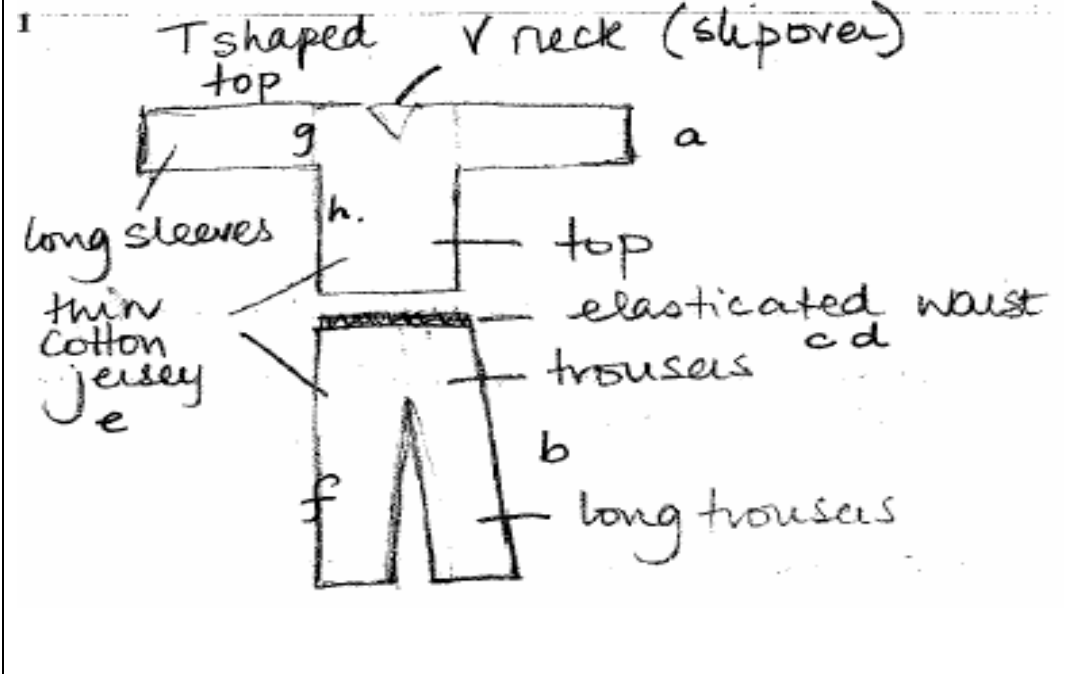 1
T shaped V neck (slipover)
top
g
a
h.
long sleeves
top
thin
cotton
jersey
e
elasticated waist
c d
trousers
b
f
long trousers